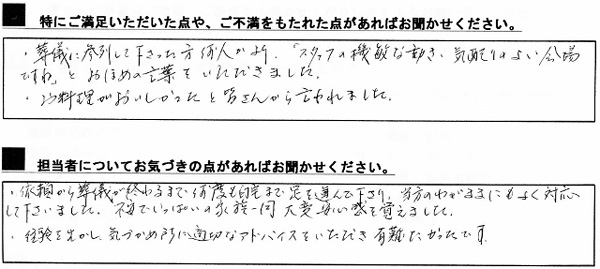 特にご満足いただいた点や、ご不満をもたれた点があればお聞かせください。
・葬儀に参列して下さった方何人かより、「スタッフの機敏な動き、気配りのよい会場
ですね」とおほめの言葉をいただきました。
・お料理がおいしかったと皆さんから言われました。
担当者についてお気づきの点があればお聞かせください。
・依頼から葬儀が終わるまで何度も自宅まで足を運んで下さり、当方のわがままにもよく対応
して下さいました。不安でいっぱいの家族一同大変安心感を覚えました。
・経験を生かし、気づかぬ所に適切なアドバイスをいただき有難たかったです